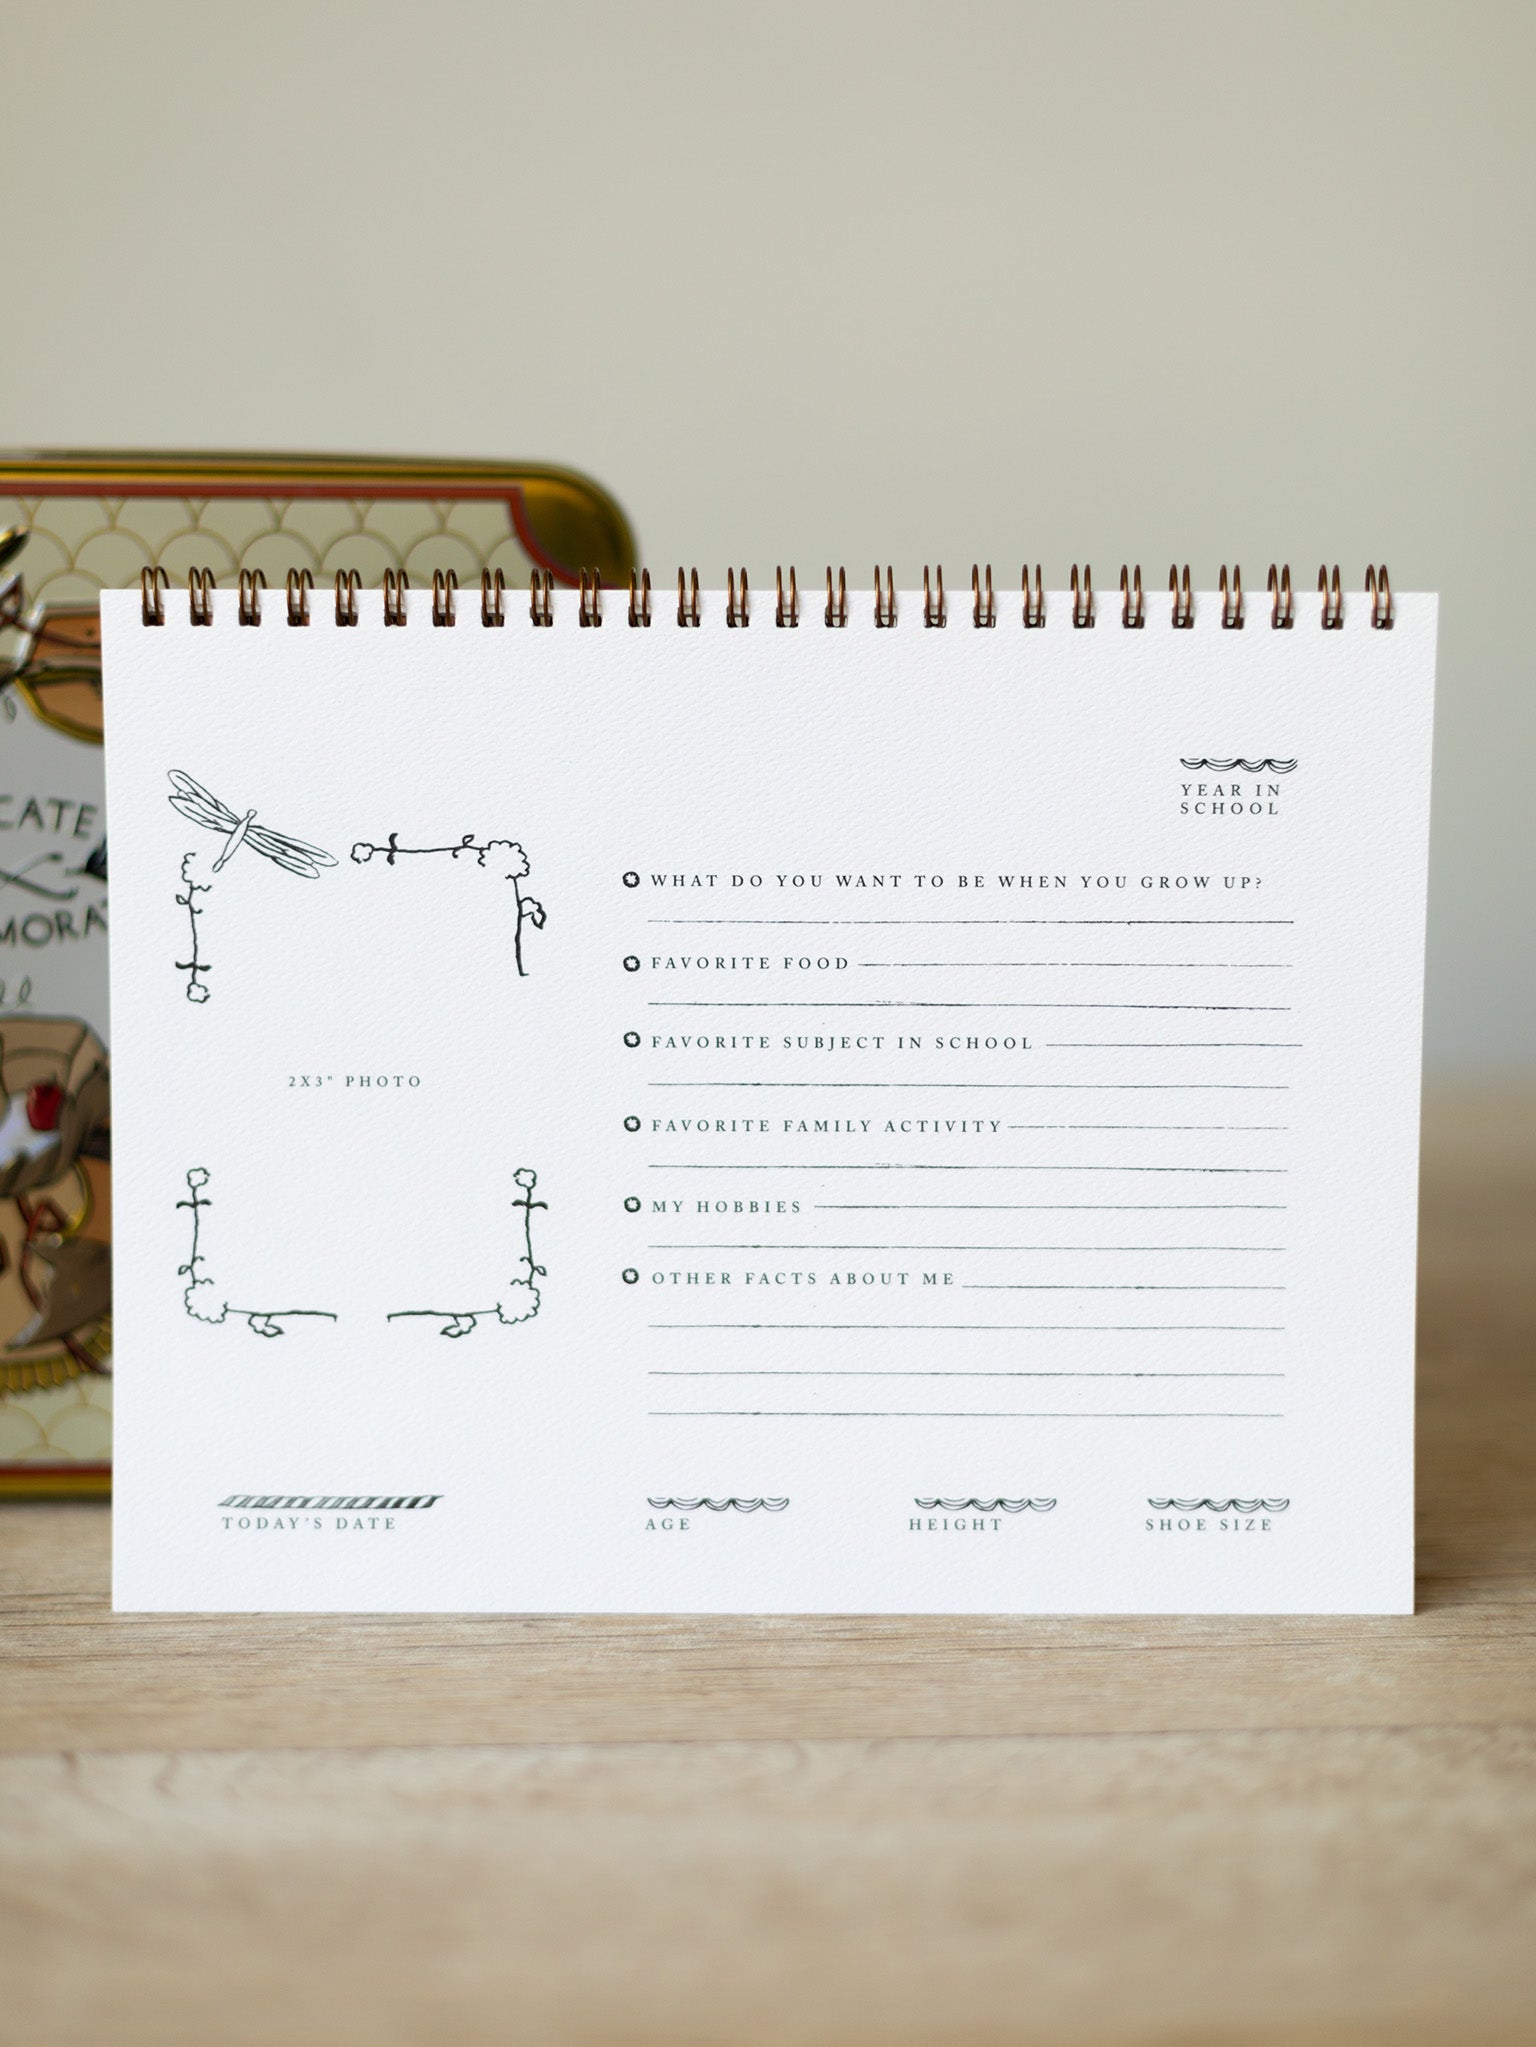 CATE
YEAR IN
SCHOOL
WHAT DO YOU WANT TO BE WHEN YOU GROW UP?
FAVORITE FOOD
FAVORITE SUBJECT IN SCHOOL
2X3" PHOTO
FAVORITE FAMILY ACTIVITY
MY HOBBIES
OTHER FACTS ABOUT ME
TODAY'S DATE
AGE
HEIGHT
SHOE SIZE